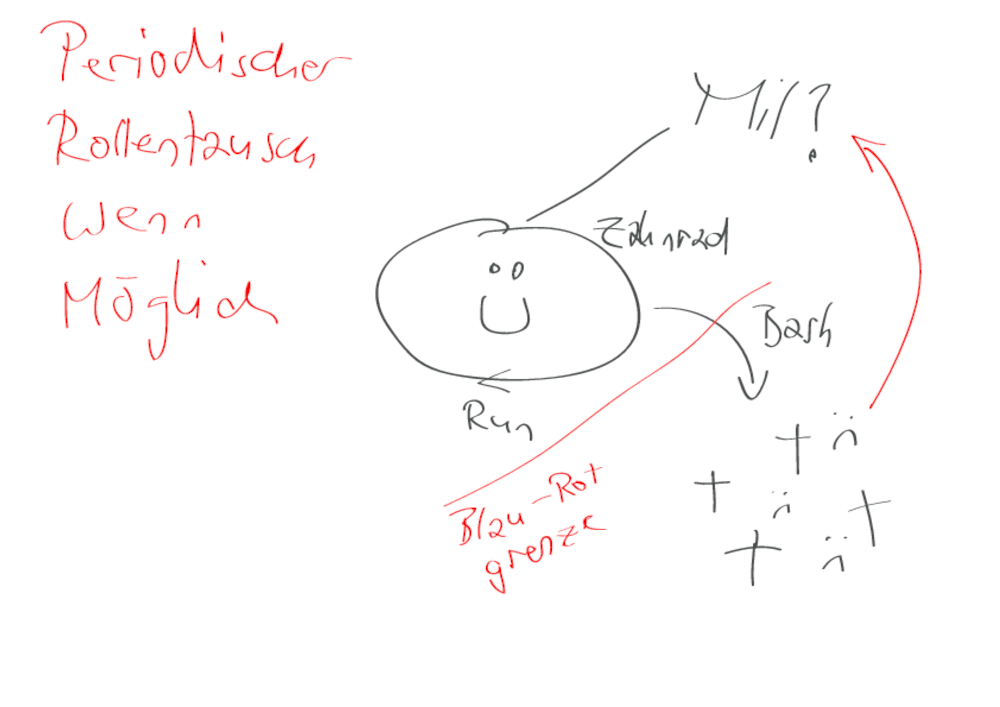 Periodischer
Rollentausch
wenn
Möglich
Zahnrad
Bash
Run
Blau-Rot
grenze